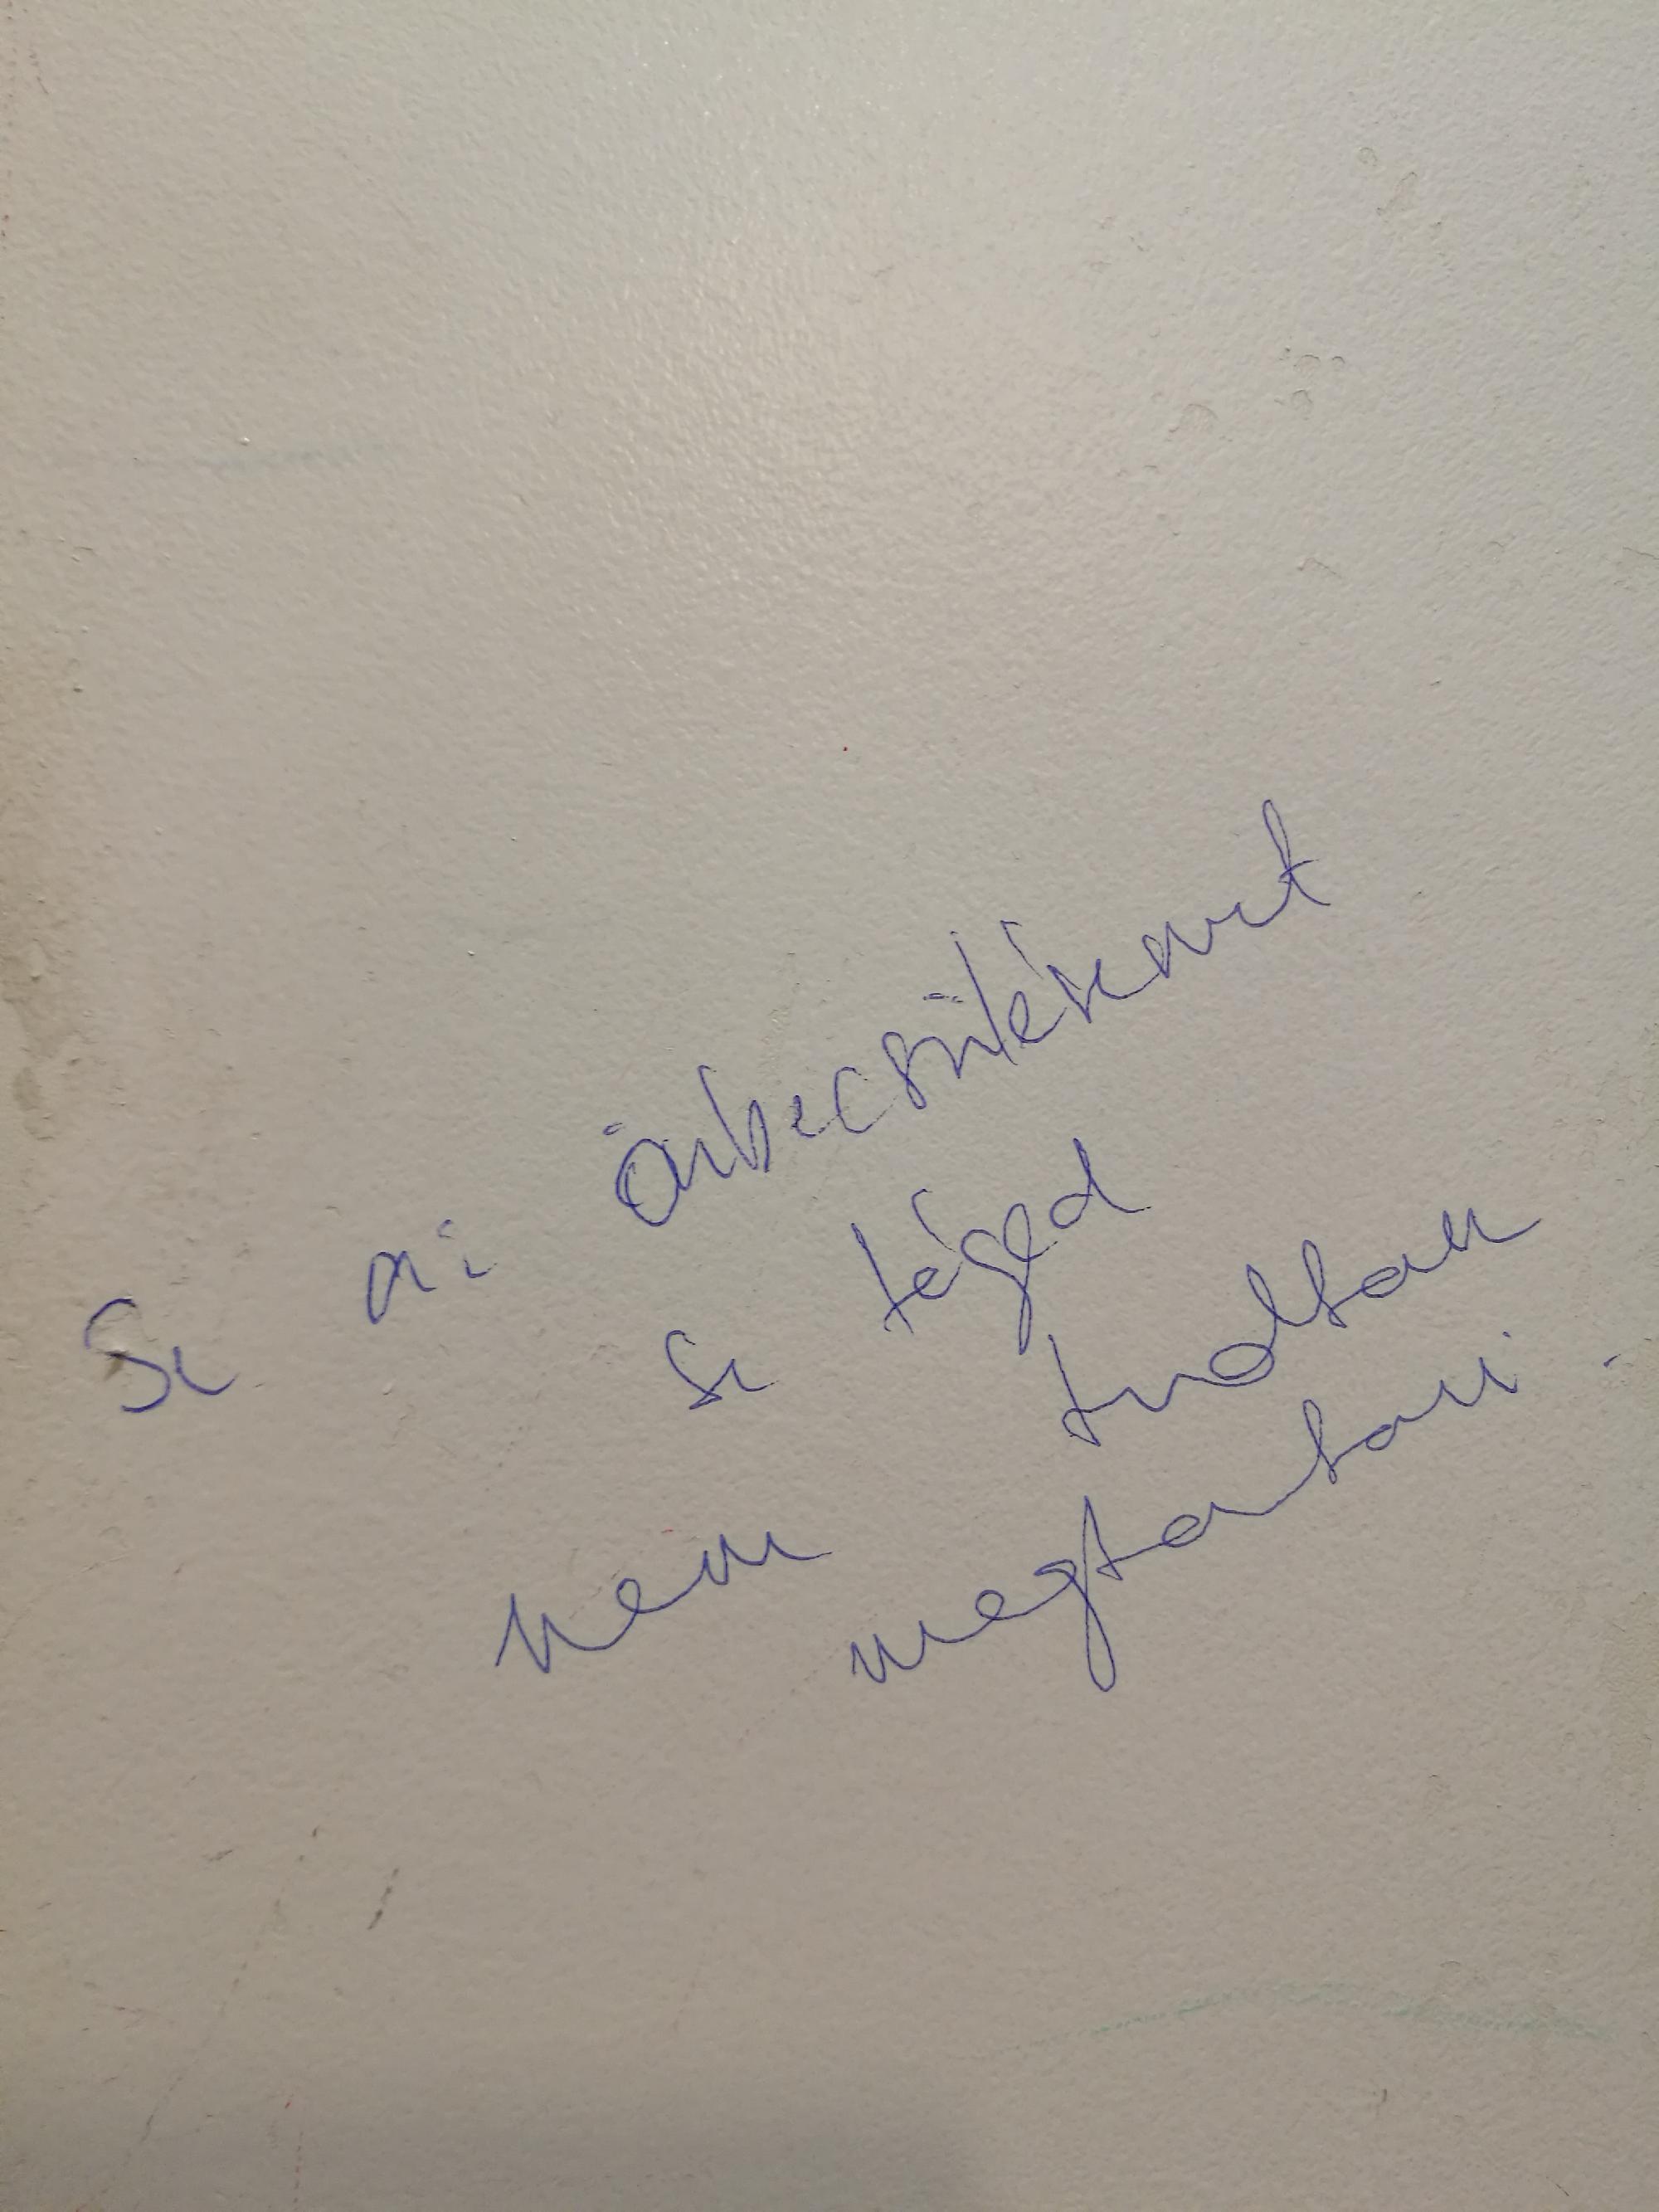 Se az önbecsülésemet
se téged
nem tudtam
megtartani.